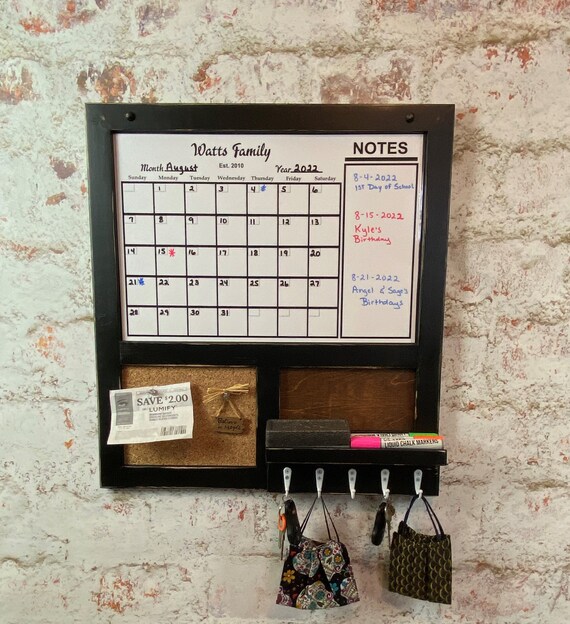 Watts Family
Est. 2010
Month August
Year 2022
Sunday Monday Tuesday Wednesday Thursday Friday Saturday
1 2 3 4 * 5 6
7 8 9 10 11 12 13
14 15 * 16 17 18 19 20
21 * 22 23 24 25 26 27
28 29 30 31
NOTES
8-4-2022
1st Day of School
8-15-2022
Kyle's
Birthday
8-21-2022
Angel & Sage's
Birthdays
SAVE $2.00
LUMIFY
LIQUID CHALK MARKERS